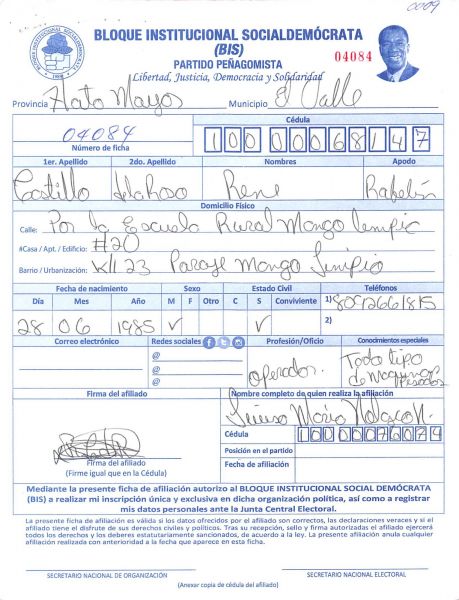 0009
BLOQUE INSTITUCIONAL SOCIALDEMÓCRATA
(BIS)
PARTIDO PEÑAGOMISTA
04084
Libertad, Justicia, Democracia y Solidaridad
BLOQUE INSTITUCIONAL SOCIALDEMÓCRATA
Provincia Hato Mayor Municipio El Valle
04084
Número de ficha
Cédula
1.er. Apellido 2do. Apellido Nombres Apodo
Castillo Rene
Domicilio Físico
Calle: Por la Escuela Rural Mango
#Casa / Apt. / Edificio: #20
Barrio / Urbanización: Paraje Mango
Fecha de nacimiento Sexo Estado Civil Teléfonos
Día Mes Año M F Otro C S Conviviente 1) 8092661815
28 06 1985 V V 2)
Correo electrónico Redes sociales Profesión/Oficio Conocimientos especiales
@
@
@
Operador.
Todo tipo
de
Pesados
Firma del afiliado
Nombre completo de quien realiza la afiliación
Cédula
Posición en el partido
Fecha de afiliación
Firma del afiliado
(Firme igual que en la Cédula)
Mediante la presente ficha de afiliación autorizo al BLOQUE INSTITUCIONAL SOCIAL DEMÓCRATA
(BIS) a realizar mi inscripción única y exclusiva en dicha organización política, así como a registrar
mis datos personales ante la Junta Central Electoral.
La presente ficha de afiliación es válida si los datos ofrecidos por el afiliado son correctos, las declaraciones veraces y si el
afiliado tiene el disfrute de sus derechos civiles y políticos. Tras su recepción, sello y firma autorizados el afiliado ejercerá
todos los derechos y los deberes estatutariamente sancionados, de acuerdo a la ley. La presente afiliación anula cualquier
afiliación realizada con anterioridad a la fecha que aparece en esta ficha.
SECRETARIO NACIONAL DE ORGANIZACIÓN SECRETARIO NACIONAL ELECTORAL
(Anexar copia de cédula del afiliado)